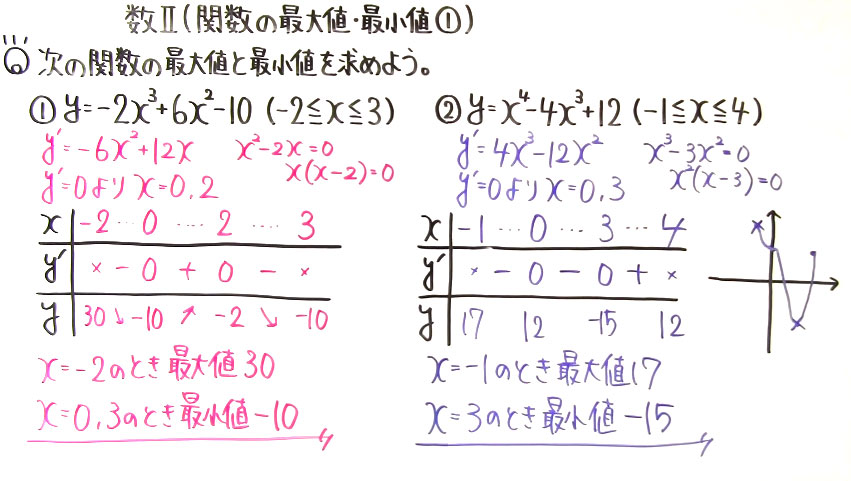 数Ⅱ(関数の最大値・最小値①)
次の関数の最大値と最小値を求めよう。
① y=-2x³+6x²-10 (-2≦x≦3)
y'=-6x²+12x x²-2x=0
x(x-2)=0
y'=0より x=0,2
x -2 … 0 … 2 … 3
y' × - 0 + 0 - ×
y 30 ↘ -10 ↗ -2 ↘ -10
x=-2のとき最大値30
x=0,3のとき最小値-10
② y=x⁴-4x³+12 (-1≦x≦4)
y'=4x³-12x² x³-3x²=0
x²(x-3)=0
y'=0より x=0,3
x -1 … 0 … 3 … 4
y' × - 0 - 0 + ×
y 17 12 -15 12
x=-1のとき最大値17
x=3のとき最小値-15